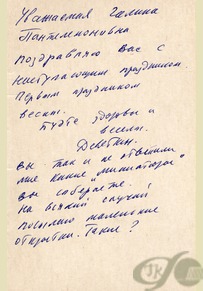 Уважаемая Галина
Пантелеймоновна
Поздравляю Вас с
наступающим праздником.
Первым праздником
весны.
Будте здоровы и
веселы.
Вы так и не ответили
мне какие "миниатюры"
вы собираете.
На всякий случай
посылаю маленькие
открытки. Такие?